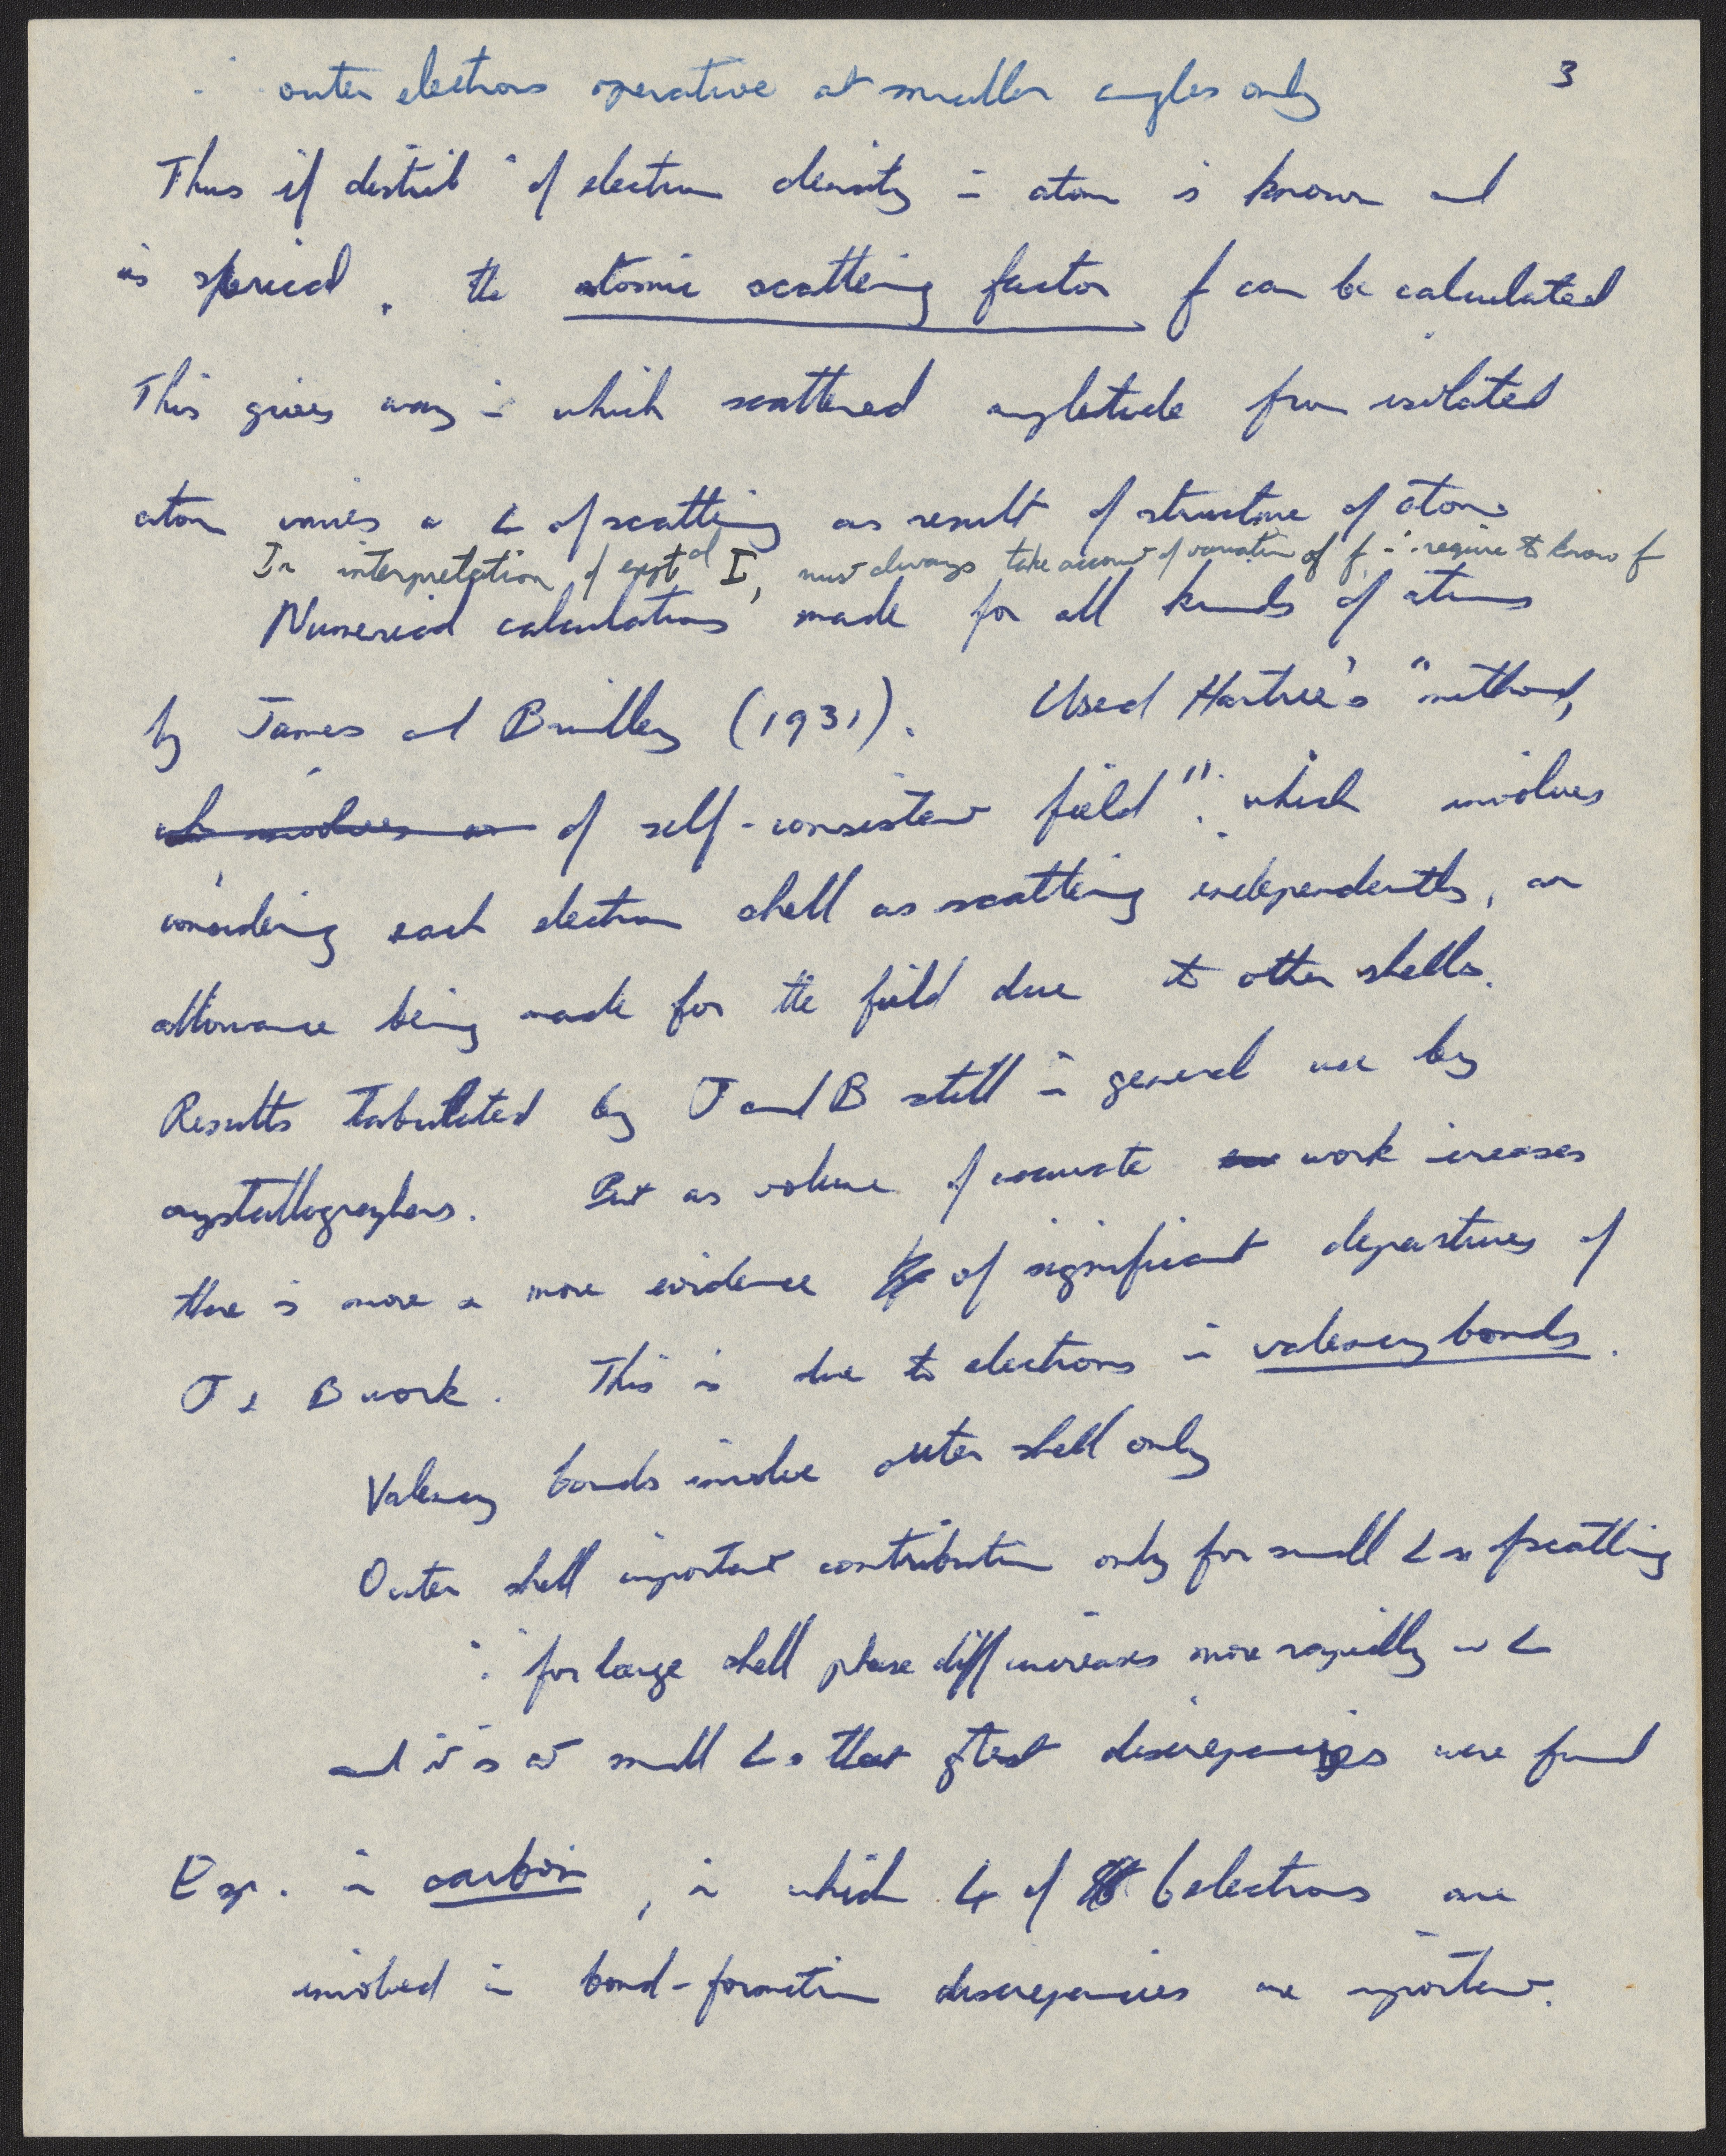 3
∴ outer electrons operative at smaller angles only
Thus if distribⁿ of electron density in atom is known and
is sperical, the atomic scattering factor f can be calculated
This gives way in which scattered amplitude from isolated
atom varies w ∠ of scattering as result of structure of atom.
In interpretation of expt^al I, must always take account of variation of f, ∴ require to know f
Numerical calculations made for all kinds of atoms
by James and Brindley (1931). Used Hartree's "method,
wh involves an of self-consistent field". which involves
considering each electron shell as scattering independently, an
allowance being made for the field due to other shells.
Results tabulated by J and B still in general use by
crystallographers. But as volume of accurate work increases
there is more & more evidence of significant departures of
J & B work. This is due to electrons in valency bonds.
Valency bonds involve outer shell only
Outer shell important contribution only for small ∠s of scattering
∵ for large shell phase diff increases more rapidly w ∠
and it is at small ∠s that gtest discrepancies were found
Esp. in carbon, in which 4 of 6 electrons are
involved in bond-formation discrepancies are important.